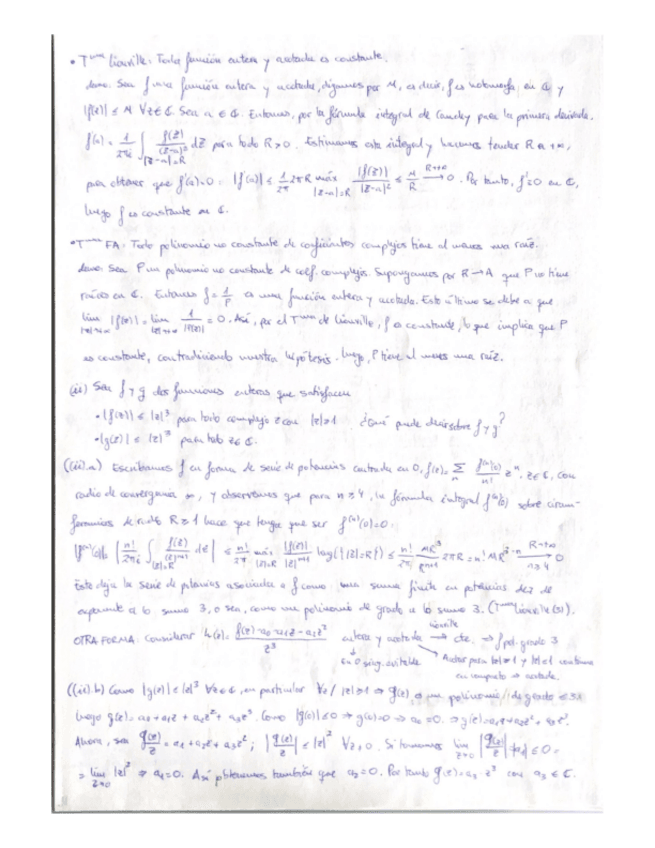 • Tma Liouville: Toda función entera y acotada es constante.
demo. Sea f una función entera y acotada, digamos por M, es decir, f es holomorfa en ℂ y
|f(z)| ≤ M ∀z∈ℂ. Sea a ∈ ℂ. Entonces, por la fórmula integral de Cauchy para la primera derivada,
f'(a) = 1/2πi ∫_{|z-a|=R} f(z)/(z-a)² dz para todo R>0. Estimamos esta integral y hacemos tender R a +∞,
para obtener que f'(a)=0: |f'(a)| ≤ 1/2π 2πR máx_{|z-a|=R} |f(z)|/|z-a|² ≤ M/R →(R→+∞) 0. Por tanto, f'≡0 en ℂ,
luego f es constante en ℂ.
• Tma FA: Todo polinomio no constante de coeficientes complejos tiene al menos una raíz.
demo. Sea P un polinomio no constante de coef. complejos. Supongamos por R→A que P no tiene
raíces en ℂ. Entonces f = 1/P es una función entera y acotada. Esto último se debe a que
lim_{|z|→∞} |f(z)| = lim_{|z|→∞} 1/|P(z)| = 0. Así, por el Tma de Liouville, f es constante, lo que implica que P
es constante, contradiciendo nuestra hipótesis. Luego, P tiene al menos una raíz.
(ii) Sean f y g dos funciones enteras que satisfacen
• |f(z)| ≤ |z|³ para todo complejo z con |z|≥1 ¿Qué puede decir sobre f y g?
• |g(z)| ≤ |z|³ para todo z∈ℂ.
((ii).a) Escribamos f en forma de serie de potencias centrada en 0, f(z)=∑_n f⁽ⁿ⁾(0)/n! zⁿ, z∈ℂ, con
radio de convergencia ∞, y observemos que para n≥4, la fórmula integral f⁽ⁿ⁾(0) sobre circun-
ferencias de radio R≥1 hace que tenga que ser f⁽ⁿ⁾(0)=0:
|f⁽ⁿ⁾(0)| = |n!/2πi ∫_{|z|=R} f(z)/zⁿ⁺¹ dz| ≤ n!/2π máx_{|z|=R} |f(z)|/|z|ⁿ⁺¹ long({|z|=R}) ≤ n!/2π MR³/Rⁿ⁺¹ 2πR = n! MR³⁻ⁿ →(R→+∞, n≥4) 0
Esto deja la serie de potencias asociada a f como una suma finita en potencias de z de
exponente a lo sumo 3, o sea, como un polinomio de grado a lo sumo 3. (Tma Liouville).
OTRA FORMA: Considerar h(z) = f(z)-a₀-a₁z-a₂z² / z³ entera y acotada →(Liouville) cte. ⇒ f pol. grado 3
en 0 sing. evitable Acotar para |z|≥1 y |z|≤1 continua
en compacto ⇒ acotada.
((ii).b) Como |g(z)| ≤ |z|³ ∀z∈ℂ, en particular ∀z / |z|≥1 ⇒ g(z) es un polinomio de grado ≤3.
Luego g(z) = a₀+a₁z+a₂z²+a₃z³. Como |g(0)| ≤ 0 ⇒ g(0)=0 ⇒ a₀=0. ⇒ g(z)=a₁z+a₂z²+a₃z³.
Ahora, sea g(z)/z = a₁+a₂z+a₃z²; |g(z)/z| ≤ |z|² ∀z≠0. Si tomamos lim_{z→0} |g(z)/z| = |a₁| ≤ 0 =
= lim_{z→0} |z|² ⇒ a₁=0. Así obtenemos también que a₂=0. Por tanto g(z)=a₃z³ con a₃∈ℂ.